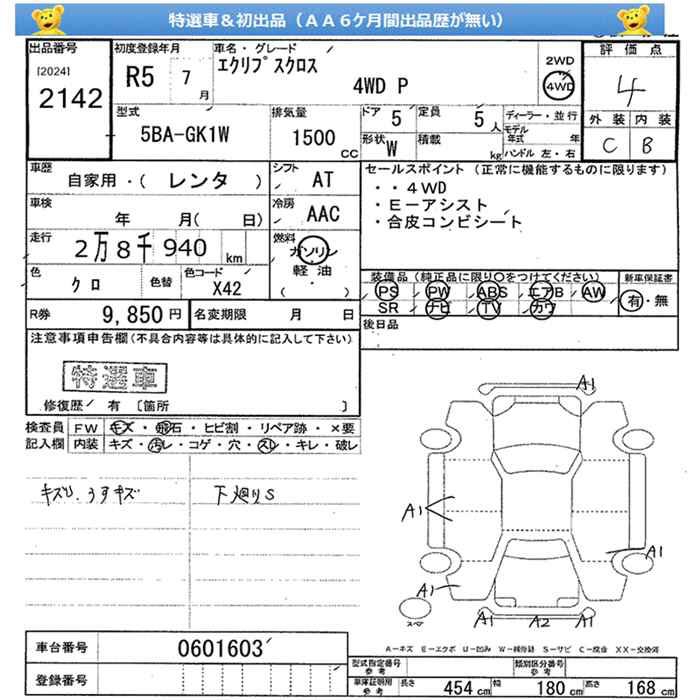 特選車＆初出品（ＡＡ６ケ月間出品歴が無い）
出品番号 初度登録年月 車名・グレード 評価点
[2024] 2142
R5 7月
エクリプスクロス
4WD P
2WD
4WD
4
外装 内装
C B
型式 排気量 ドア 5 定員 5人 ディーラー・並行
5BA-GK1W 1500cc 形状 W 積載 kg モデル年式 年
ハンドル 左・右
車歴 シフト セールスポイント（正常に機能するものに限ります）
自家用・（ レンタ ） AT
・・４WD
・Ｅーアシスト
・合皮コンビシート
車検 冷房
年 月（ 日） AAC
走行 燃料
2万8千940km ガソリン
軽油・
（ ）
色 色替 色コード
クロ X42
装備品（純正品に限り〇をつけてください） 新車保証書
PS PW ABS エアB AW 有・無
SR ナビ TV カワ
R券 9,850円 名変期限 月 日
後日品
注意事項申告欄（不具合内容等は具体的に記入して下さい）
特選車
修復歴／ 有 〔箇所 〕
検査員 FW キズ・飛石・ヒビ割・リペア跡・×要
記入欄 内装 キズ・汚レ・コゲ・穴・スレ・キレ・破レ
キズ、うすキズ 下廻りS
A1
A1
A1
A1
A1 A2 A1
スペア
A－キズ E－エクボ U－凹み W－補修跡 S－サビ C－腐食 XX－交換済
車台番号 0601603
登録番号
型式指定番号 参考 類別区分番号 参考
車庫証明用 参考 長さ 454cm 幅 180cm 高さ 168cm